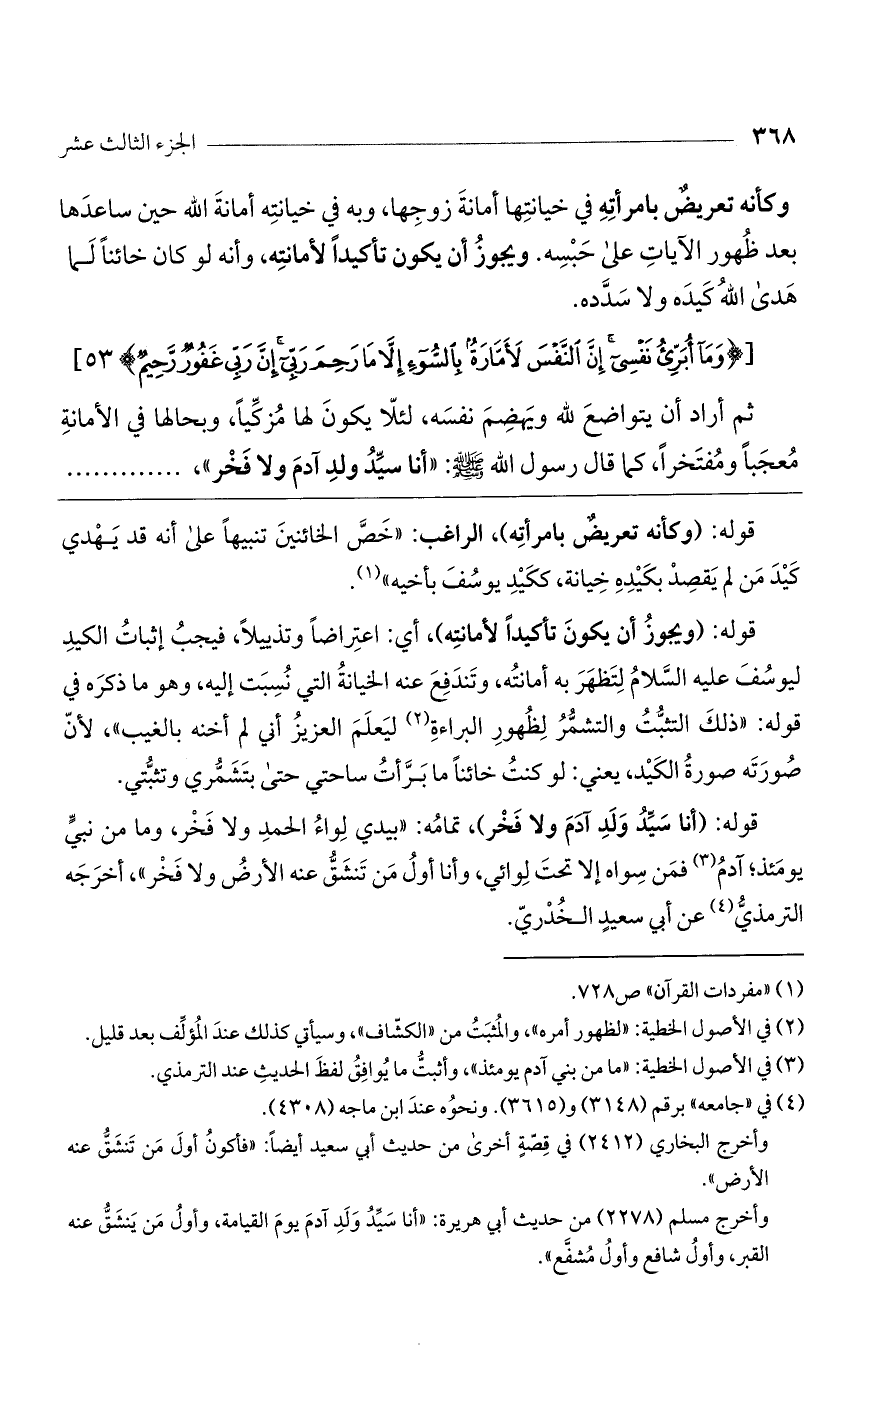 ٣٦٨ الجزء الثالث عشر
وكأنه تعريضٌ بامرأتِهِ في خيانتِها أمانةَ زوجِها، وبه في خيانتِه أمانةَ الله حين ساعدَها
بعد ظُهور الآياتِ علىٰ حَبْسِه. ويجوزُ أن يكون تأكيداً لأمانتِه، وأنه لو كان خائناً لَـما
هَدىٰ اللهُ كَيدَه ولا سَدَّده.
[﴿وَمَآ أُبَرِّئُ نَفْسِىٓ ۚ إِنَّ ٱلنَّفْسَ لَأَمَّارَةٌۢ بِٱلسُّوٓءِ إِلَّا مَا رَحِمَ رَبِّىٓ ۚ إِنَّ رَبِّى غَفُورٌ رَّحِيمٌ﴾ ٥٣]
ثم أراد أن يتواضعَ لله ويَهضِمَ نفسَه، لئلّا يكونَ لها مُزكِّياً، وبحالها في الأمانةِ
مُعجَباً ومُفتَخراً، كما قال رسول الله ﷺ: «أنا سيِّدُ ولدِ آدمَ ولا فَخْر»، .............
قوله: (وكأنه تعريضٌ بامرأتِه)، الراغب: «خَصَّ الخائنينَ تنبيهاً علىٰ أنه قد يَـهْدي
كَيْدَ مَن لم يَقصِدْ بكَيْدِهِ خِيانة، ككَيْدِ يوسُفَ بأخيه»(١).
قوله: (ويجوزُ أن يكونَ تأكيداً لأمانتِه)، أي: اعتِراضاً وتذييلاً، فيجبُ إثباتُ الكيدِ
ليوسُفَ عليه السَّلامُ لِتَظهَرَ به أمانتُه، وتَندَفِعَ عنه الخيانةُ التي نُسِبَت إليه، وهو ما ذكرَه في
قوله: «ذلكَ التثبُّتُ والتشمُّرُ لِظُهورِ البراءةِ(٢) ليَعلَمَ العزيزُ أني لم أخنه بالغيب»، لأنّ
صُورَتَه صورةُ الكَيْد، يعني: لو كنتُ خائناً ما بَـرَّأتُ ساحتي حتىٰ بتَشَمُّري وتثبُّتي.
قوله: (أنا سَيِّدُ وَلَدِ آدَمَ ولا فَخْر)، تمامُه: «بيدي لِواءُ الحمدِ ولا فَخْر، وما من نبيٍّ
يومَئذ؛ آدمُ(٣) فمَن سِواه إلا تحتَ لِوائي، وأنا أولُ مَن تَنشَقُّ عنه الأرضُ ولا فَخْر»، أخرَجَه
الترمذيُّ(٤) عن أبي سعيدٍ الـخُدْريّ.
(١) «مفردات القرآن» ص٧٢٨.
(٢) في الأصول الخطية: «لظهور أمره»، والمُثبَتُ من «الكشّاف»، وسيأتي كذلك عندَ المُؤلِّف بعد قليل.
(٣) في الأصول الخطية: «ما من بني آدم يومئذ»، وأثبتُّ ما يُوافِقُ لفظَ الحديثِ عند الترمذي.
(٤) في «جامعه» برقم (٣١٤٨) و(٣٦١٥). ونحوُه عندَ ابن ماجه (٤٣٠٨).
وأخرج البخاري (٢٤١٢) في قِصّةٍ أخرىٰ من حديث أبي سعيد أيضاً: «فأكونُ أولَ مَن تَنشَقُّ عنه
الأرض».
وأخرج مسلم (٢٢٧٨) من حديث أبي هريرة: «أنا سَيِّدُ وَلَدِ آدمَ يومَ القيامة، وأولُ مَن يَنشَقُّ عنه
القبر، وأولُ شافع وأولُ مُشفَّع».